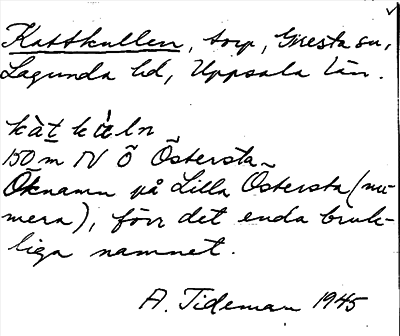 Kattkullen, torp, Gnesta sn,
Lagunda hd, Uppsala län.
150 m N Ö Östersta
Öknamn på Lilla Östersta (nu-
mera), förr det enda bruk-
liga namnet.
A. Tideman 1945